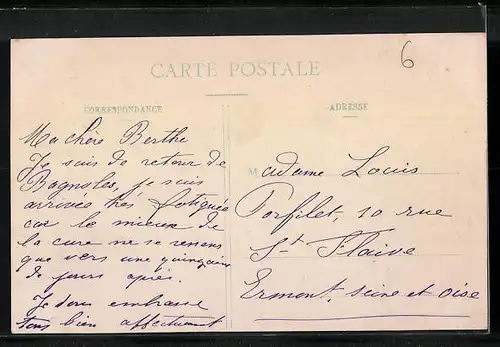 6
CARTE POSTALE
CORRESPONDANCE
ADRESSE
Ma chère Berthe
Je suis de retour de
Bagnoles, je suis
arrivée très fatiguée
car le mieux de
la cure ne se ressens
que vers une quinzaine
de jours après.
Je vous embrasse
tous bien affectueusement
Madame Louis
Porfilet, 10 rue
St Flaive
Ermont, Seine et Oise